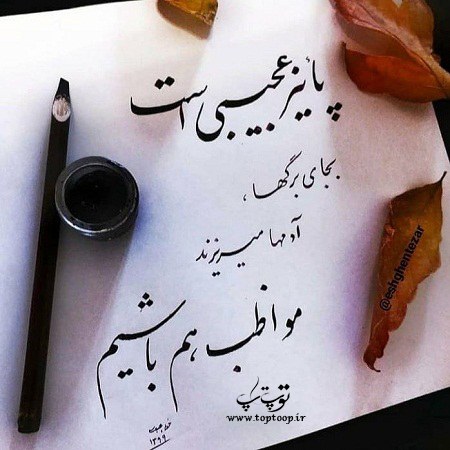 پائیز عجیبی است
بجای برگها،
آدمها میریزند
مواظب هم باشیم
توپ تاپ
www.toptoop.ir
۱۳۹۹
@eshghentezar